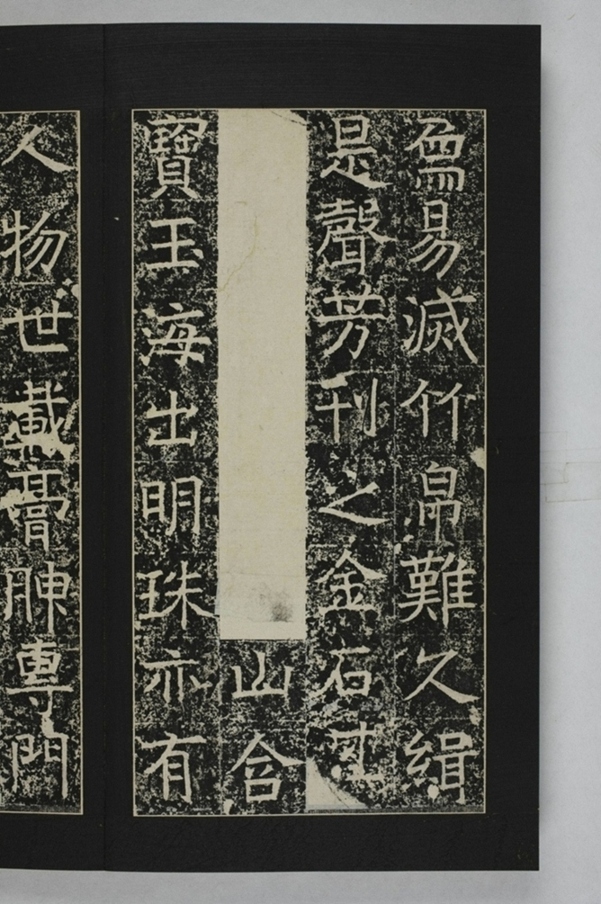 啚易滅竹帛難久緝
是聲芳刊之金石
山含
寶玉海出明珠亦有
人物世載膏腴專門